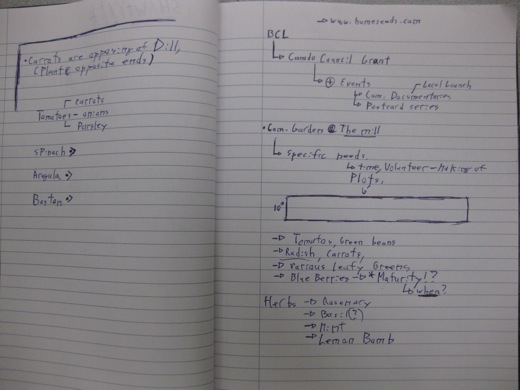 • Carrots are opposing of Dill,
(Plant @ opposite ends)
Carrots
Tomatoes - onions
Parsley
Spinach
Arugula
Boston
→ www.humeseeds.com
BCL
Canada Council Grant
⊕ Events
Local Launch
Com. Documentaries
Postcard series
• Com. Garden @ The mill
Specific needs
time, Volunteer - Making of
Plots,
10"
→ Tomatos, Green beans
→ Radish, Carrots,
→ various Leafy Greens,
→ Blue Berries → * Maturity!?
when?
Herbs → Rosemary
→ Basil(?)
→ Mint
→ Leman Bamb